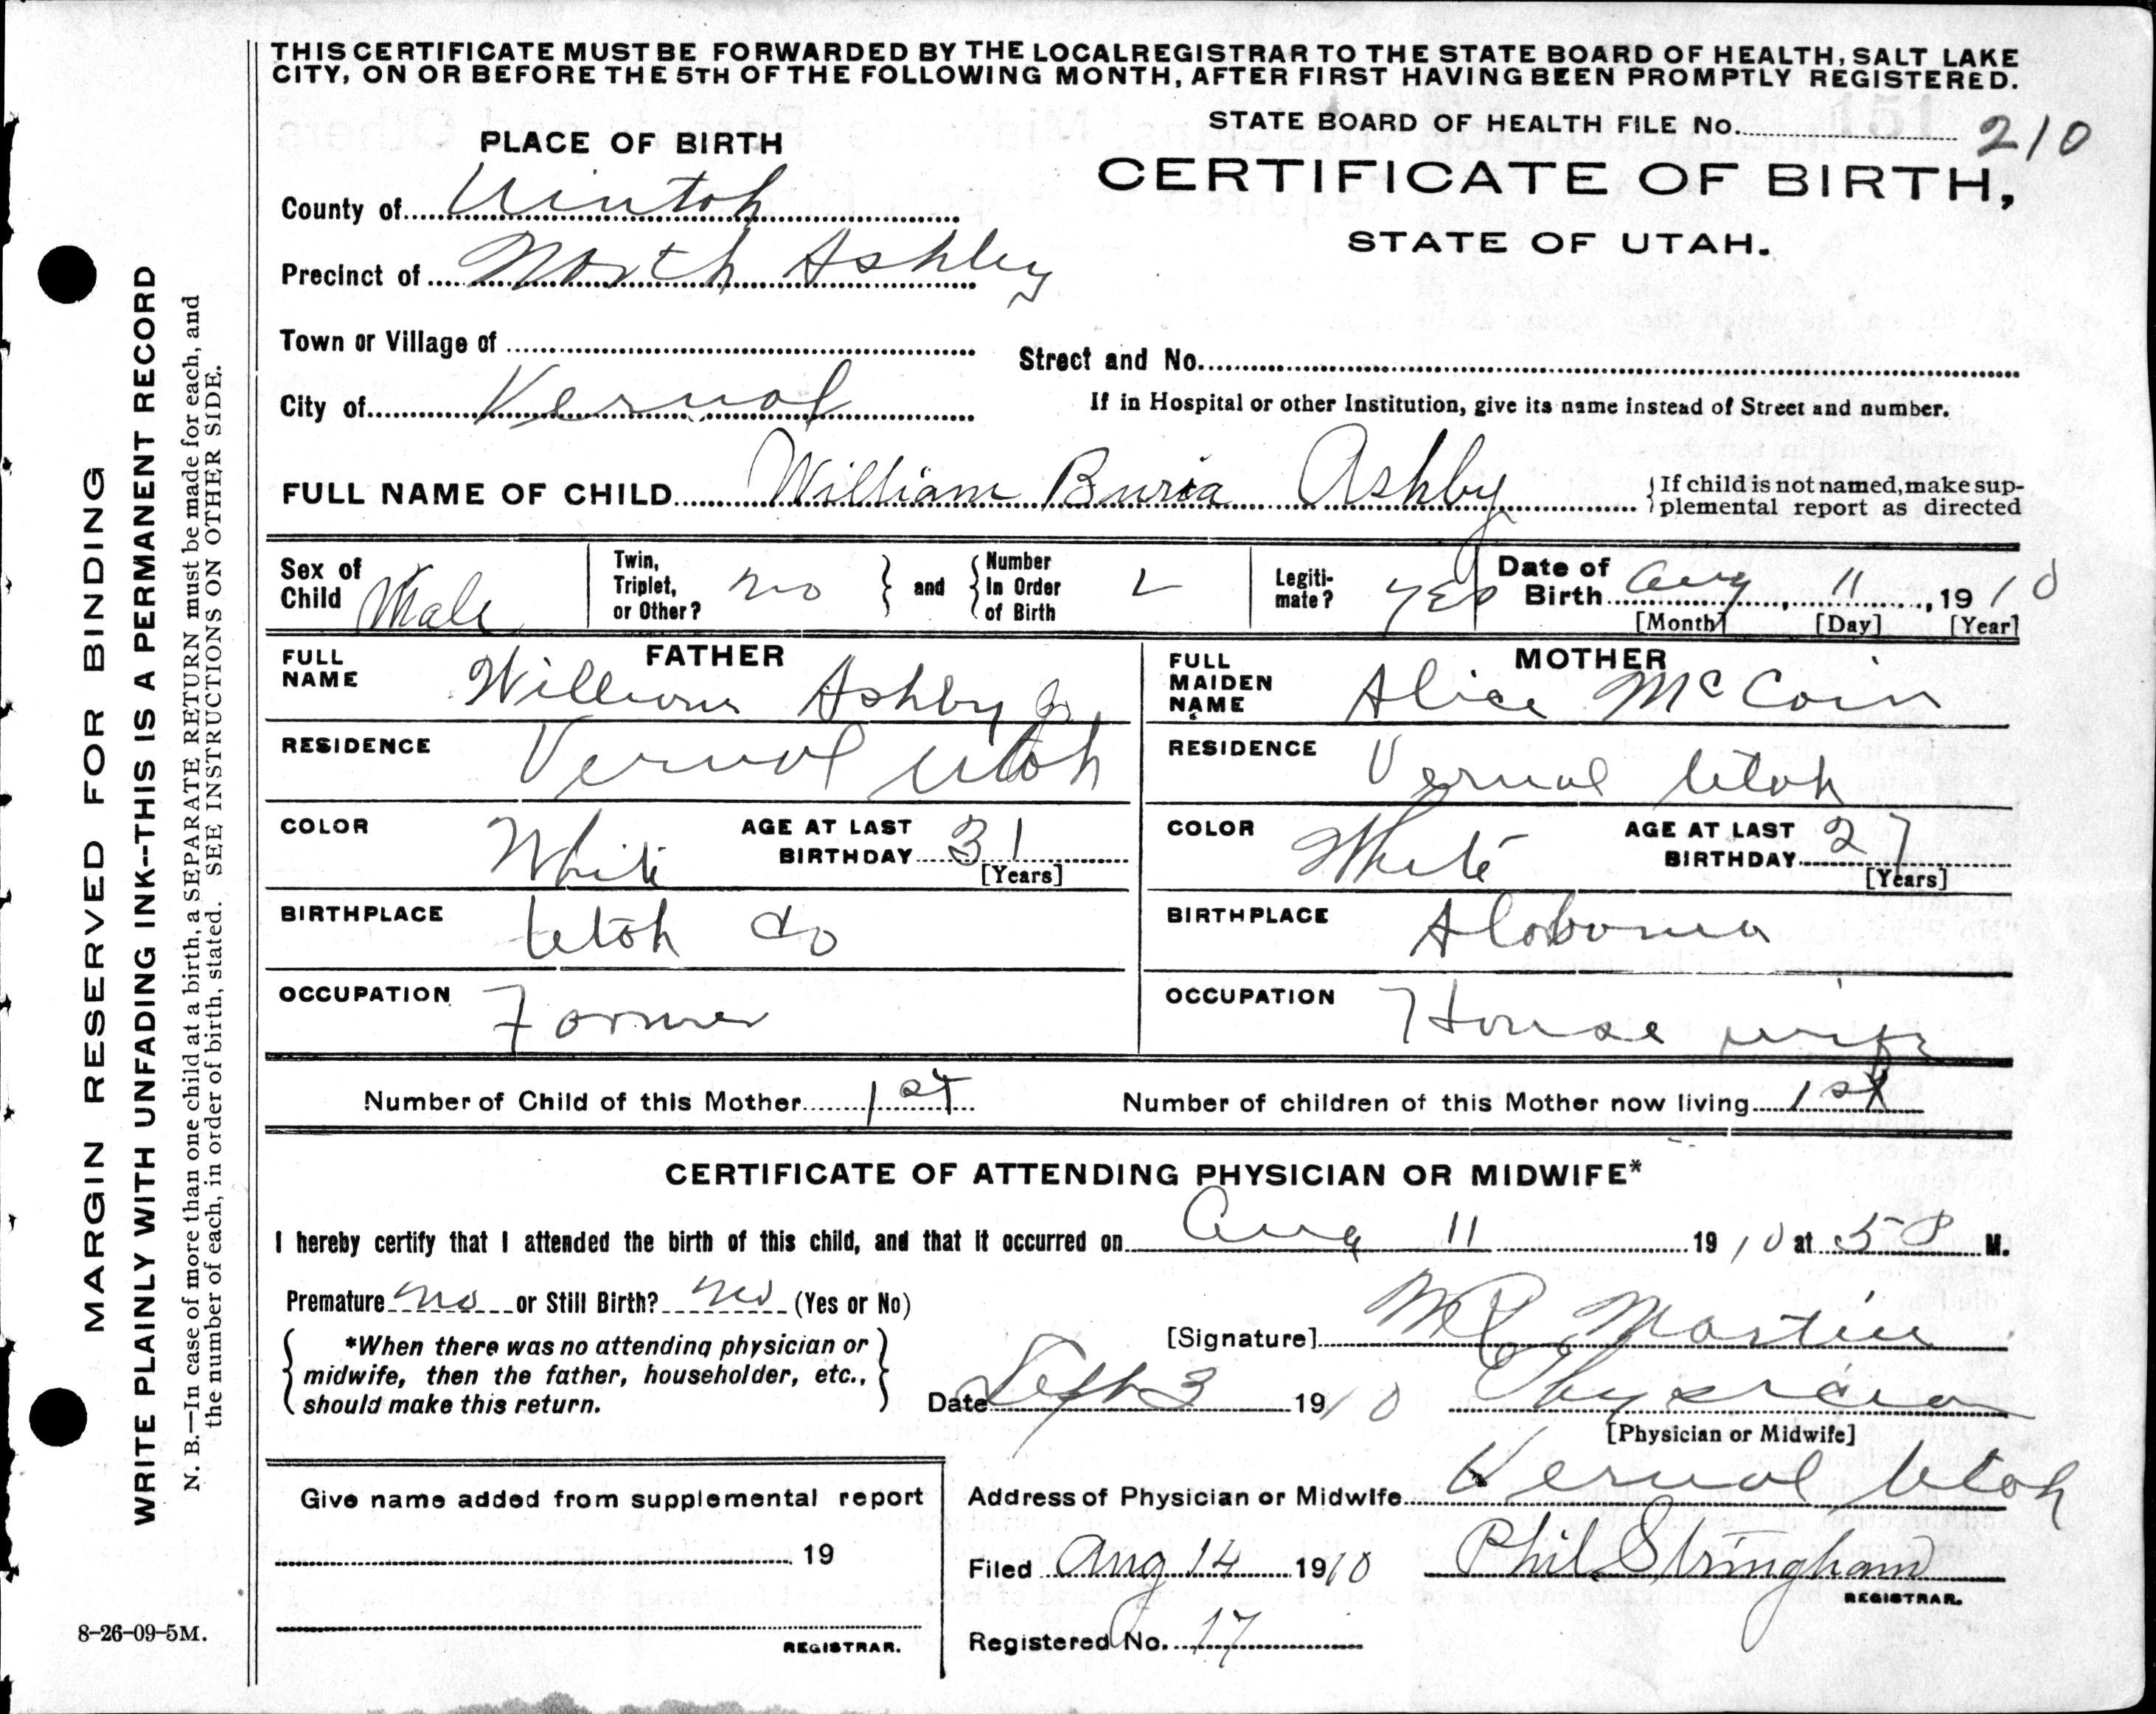 THIS CERTIFICATE MUST BE FORWARDED BY THE LOCAL REGISTRAR TO THE STATE BOARD OF HEALTH, SALT LAKE
CITY, ON OR BEFORE THE 5TH OF THE FOLLOWING MONTH, AFTER FIRST HAVING BEEN PROMPTLY REGISTERED.
STATE BOARD OF HEALTH FILE No. 210
CERTIFICATE OF BIRTH,
STATE OF UTAH.
PLACE OF BIRTH
County of Uintah
Precinct of North Ashley
Town or Village of
Street and No.
City of Vernal
If in Hospital or other Institution, give its name instead of Street and number.
FULL NAME OF CHILD William Ashby
If child is not named, make sup-
plemental report as directed
Sex of Child Male
Twin, Triplet, or Other? no
and
Number In Order of Birth
Legiti-mate? yes
Date of Birth Aug 11, 1910
[Month] [Day] [Year]
FATHER
FULL NAME William Ashby Jr
RESIDENCE Vernal Utah
COLOR White
AGE AT LAST BIRTHDAY 31
[Years]
BIRTHPLACE Utah
OCCUPATION Farmer
MOTHER
FULL MAIDEN NAME Alice McCoin
RESIDENCE Vernal Utah
COLOR White
AGE AT LAST BIRTHDAY 27
[Years]
BIRTHPLACE Alabama
OCCUPATION House wife
Number of Child of this Mother 1st
Number of children of this Mother now living 1st
CERTIFICATE OF ATTENDING PHYSICIAN OR MIDWIFE*
I hereby certify that I attended the birth of this child, and that it occurred on Aug 11 1910 at 5 P M.
Premature no or Still Birth? no (Yes or No)
*When there was no attending physician or
midwife, then the father, householder, etc.,
should make this return.
[Signature] Martin
Date Sept 3 1910
Physician
[Physician or Midwife]
Give name added from supplemental report
19
REGISTRAR.
Address of Physician or Midwife Vernal Utah
Filed Aug 14 1910
Phil Stringham
REGISTRAR.
Registered No. 17
8-26-09-5M.
MARGIN RESERVED FOR BINDING
WRITE PLAINLY WITH UNFADING INK--THIS IS A PERMANENT RECORD
N. B.—In case of more than one child at a birth, a SEPARATE RETURN must be made for each, and
the number of each, in order of birth, stated. SEE INSTRUCTIONS ON OTHER SIDE.